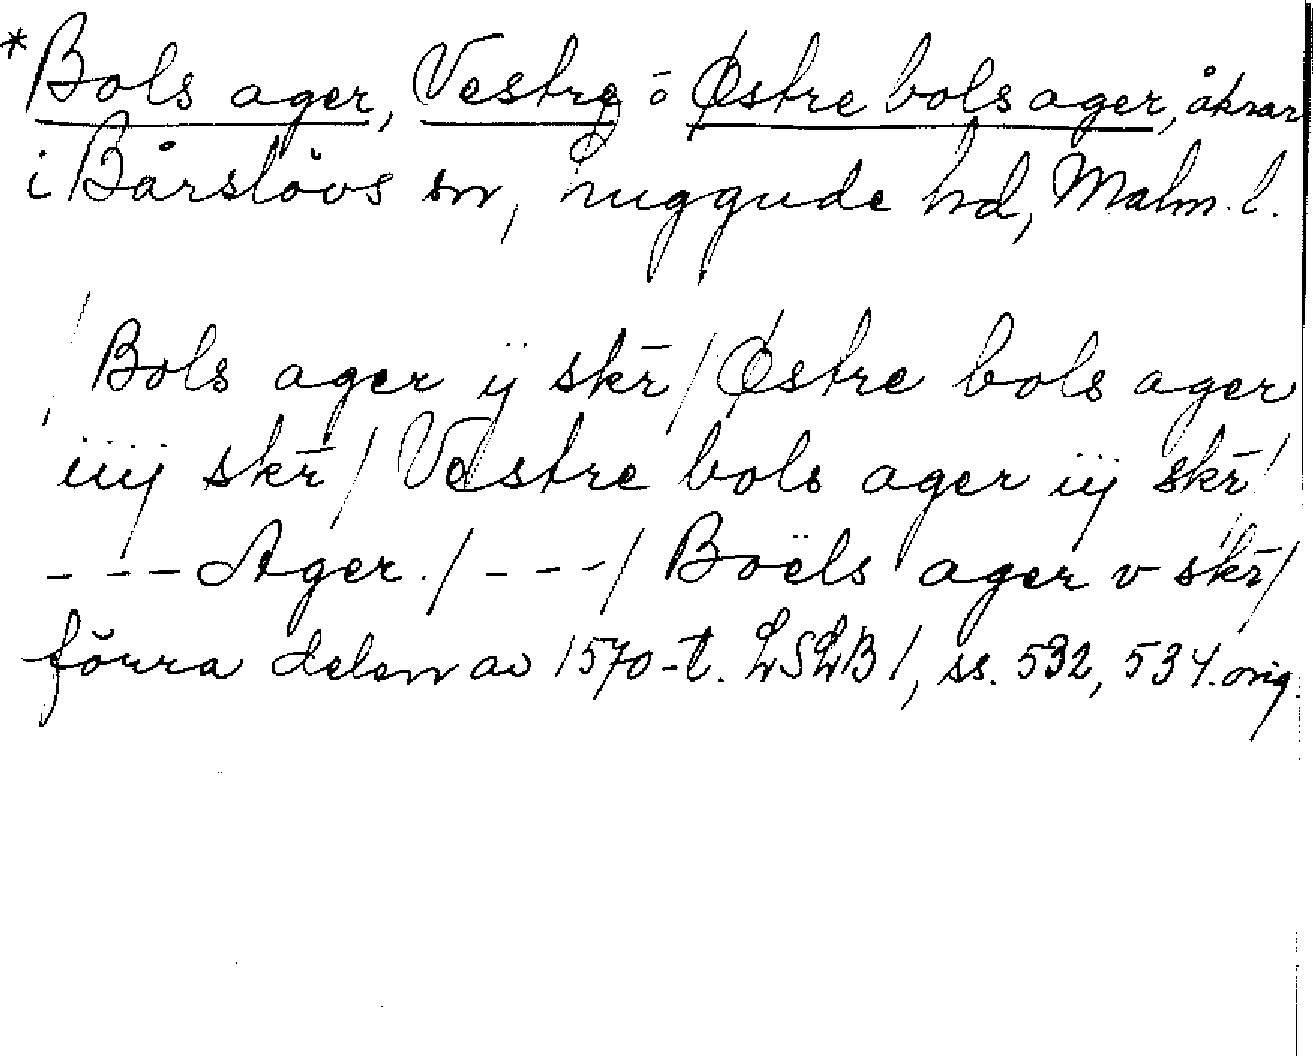 *Bols ager, Vestre o Østre bols ager, åkrar
i Bårslövs sn, Luggude hd, Malm. l.
/ Bols ager ij skr̄ / Østre bols ager
iiij skr̄ / Vestre bols ager iij skr̄ /
--- Ager. / --- / Boëls ager v skr̄ /
förra delen av 1570-t. LSLB 1, ss. 532, 534. orig.